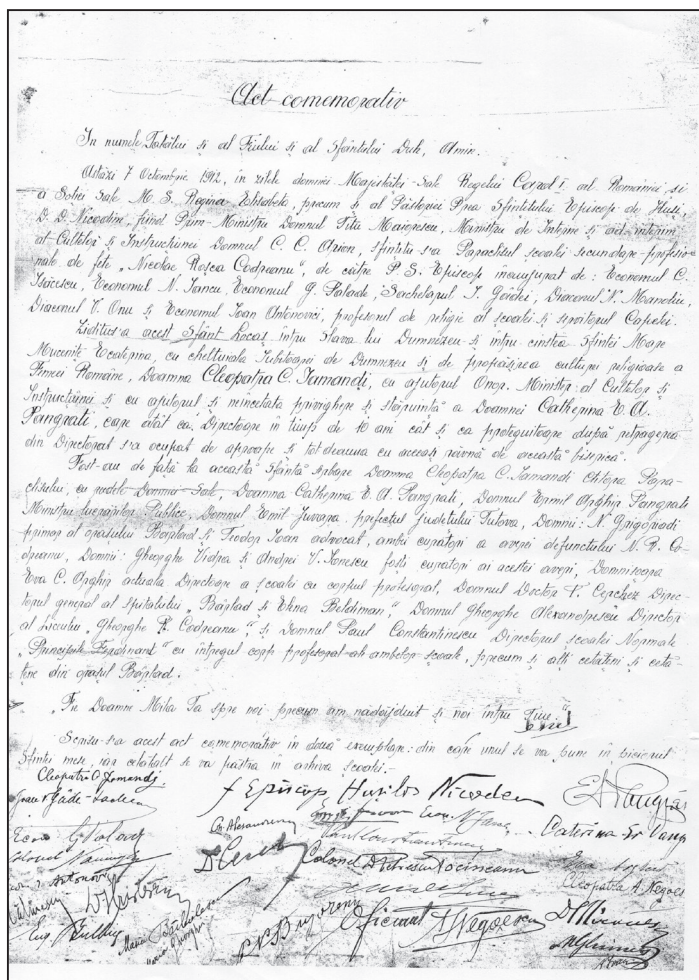 Act comemorativ
In numele Tatălui și al Fiului și al Sfântului Duh, Amin.
Astăzi 7 Octombrie 1912, în zilele domniei Majestăței Sale Regelui Carol I, al României și
a Soției Sale M. S. Regina Elisabeta, precum și al Păstoriei Prea Sfințitului Episcop de Huși,
D. D. Nicodim, fiind Prim-Ministru Domnul Titu Maiorescu, Ministru de Interne și ad-interim
al Cultelor și Instrucțiunei Domnul C. C. Arion, sfințitu-s'a Paraclisul școalei secundare profesio-
nale de fete „Nicolae Roșca Codreanu", de către P. S. Episcop înconjurat de: Economul C.
Isăcescu, Economul N. Iancu, Economul G. Palade, Sachelarul I. Gâdei, Diaconul N. Manoliu
Diaconul V. Onu și Economul Ioan Antonovici, profesorul de religie al școalei și servitorul Capelei.
Ziditus-a acest Sfânt Locaș întru Slava lui Dumnezeu și întru cinstea Sfintei Mare
Mucenite Ecaterina, cu cheltuiala Iubitoarei de Dumnezeu și de propășirea culturei religioase a
Femeei Române, Doamna Cleopatra C. Iamandi, cu ajutorul Onor. Minister al Cultelor și
Instrucțiunei și cu ajutorul și neîncetata priveghere și stăruință a Doamnei Catherina E. A.
Pangrati, care atât ca Directoare în timp de 10 ani cât și ca proteguitoare după retragerea
din Directorat s'a ocupat de aproape și totdeauna cu aceeași râvnă de această biserică.
Fost-au de față la această Sfântă Serbare Doamna Cleopatra C. Iamandi Ctitora Para-
clisului, cu rudele Domniei-Sale, Doamna Catherina E. A. Pangrati, Domnul Ermil Arghir Pangrati
Ministru lucrărilor Publice, Domnul Emil Juvara prefectul județului Tutova, Domnii: N. Grigoriadi
primar al orașului Bârlad și Teodor Ioan advocat, ambii curatori a averei defunctului N. R. Co-
dreanu, Domnii: Gheorghe Vidra și Andrei V. Ionescu foști curatori ai acestei averi, Domnișoara
Eva C. Arghir actuala Directoare a școalei cu corpul profesoral, Domnul Doctor V. Cerchez Direc-
torul general al spitalului „Bârlad și Elena Beldiman," Domnul Gheorghe Alexandrescu Director
al Liceului „Gheorghe R. Codreanu", și Domnul Paul Constantinescu Directorul școalei Normale
„Principele Ferdinand" cu întregul corp profesoral al ambelor școale, precum și alți cetățeni și cetă-
țene din orașul Bârlad.
„Fie Doamne Mila Ta spre noi precum am nădăjduit și noi întru Tine."
Scrisu-s-a acest act comemorativ în două exemplare: din care unul se va pune în piciorul
Sfintei mese, iar celălalt se va păstra în arhiva școalei.-
Cleopatra C Iamandi
† Episcop Hușilor Nicodem
Gr. Alexandrescu
Caterina Er. Pang
Paul Constantinescu
Colonel
Cleopatra A. Negoes
Oficiant A Negoescu